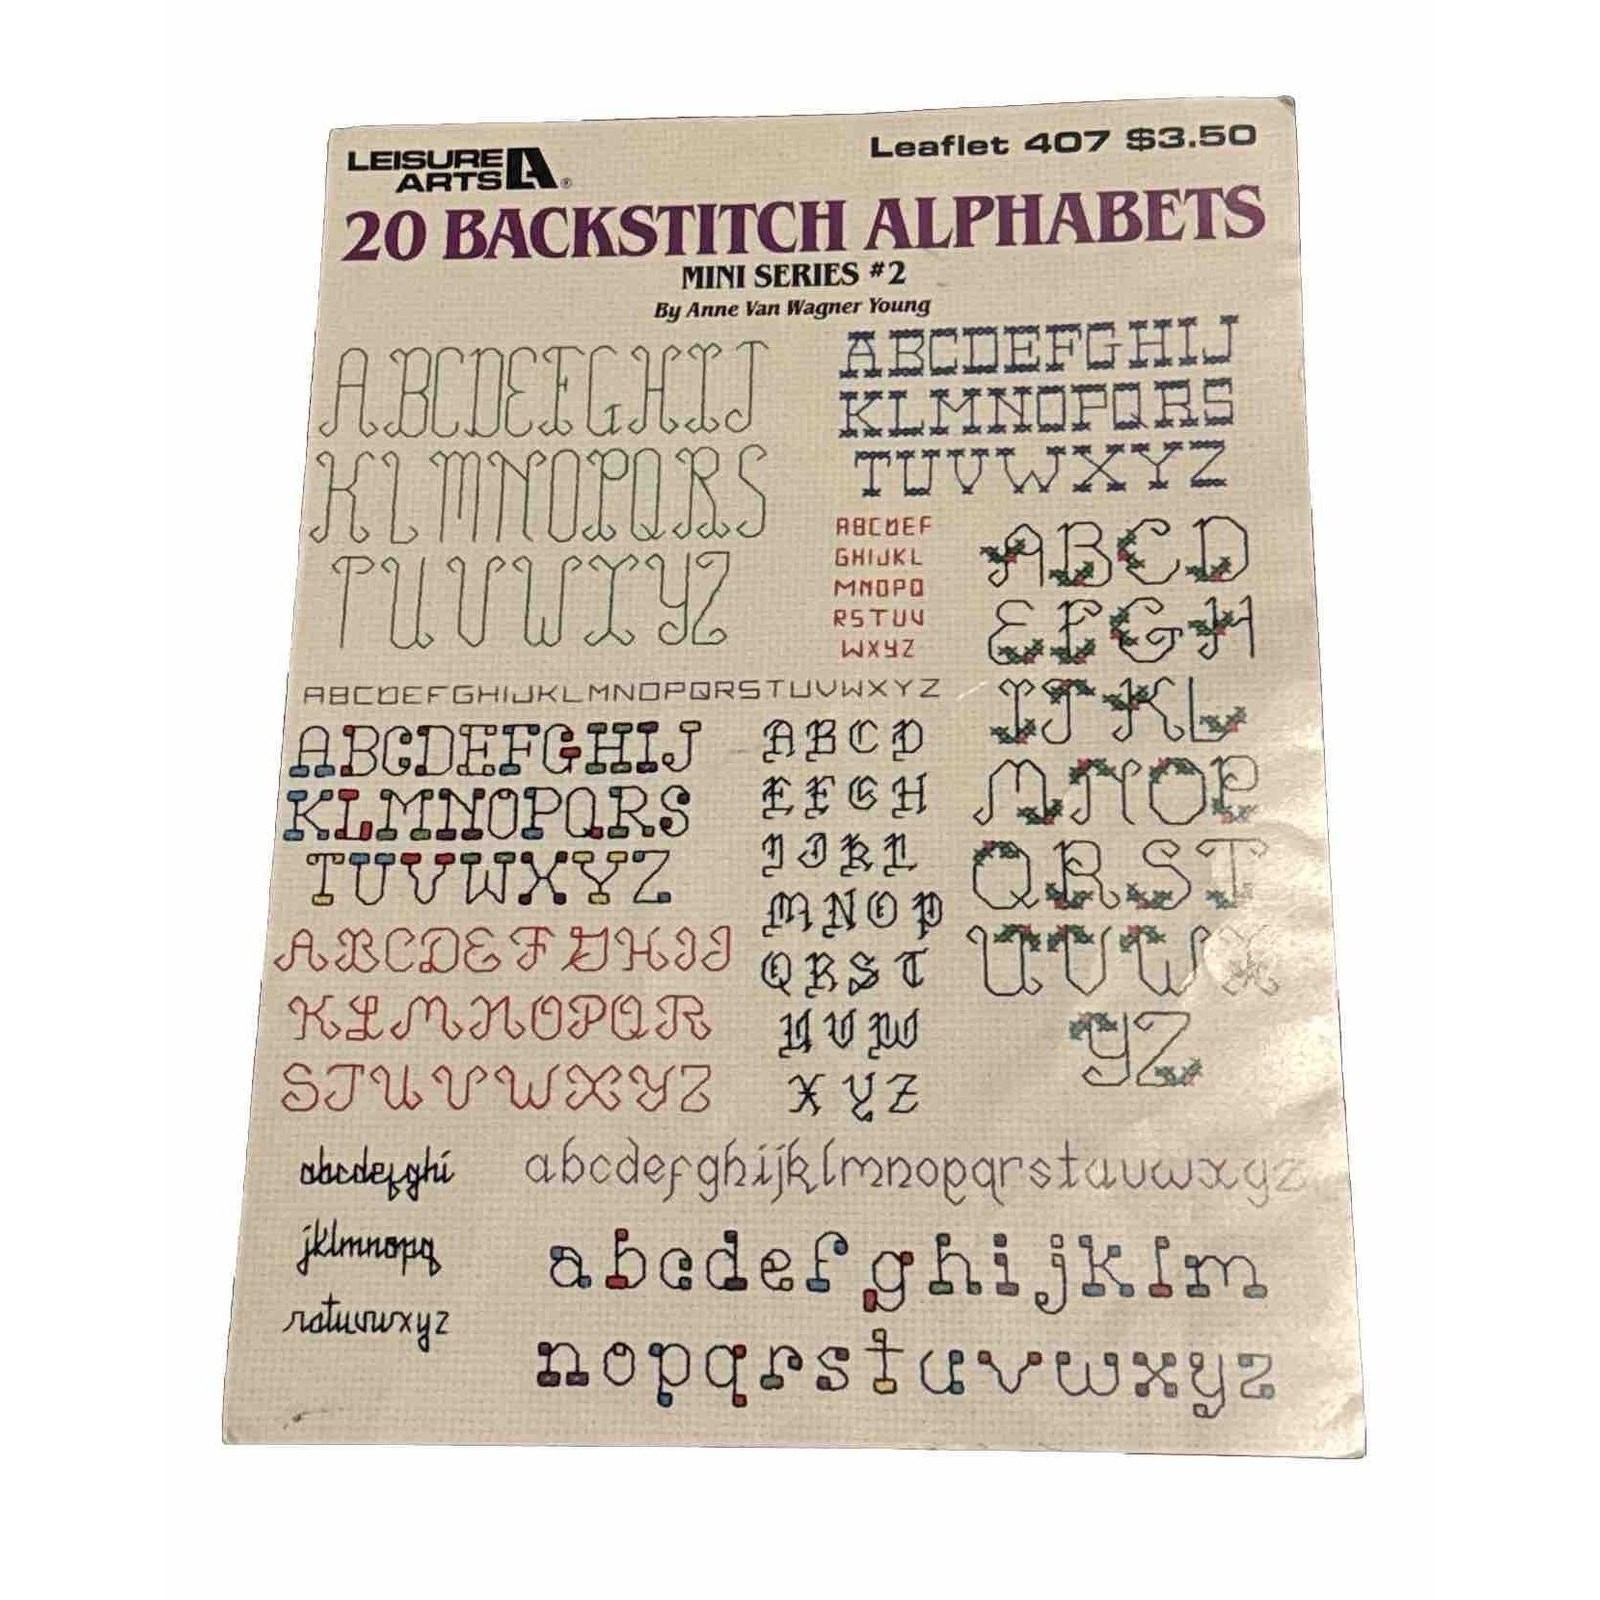 LEISURE
ARTS LA®
Leaflet 407 $3.50
20 BACKSTITCH ALPHABETS
MINI SERIES #2
By Anne Van Wagner Young
ABCDEFGHIJ
KLMNOPQRS
TUVWXYZ
ABCDEFGHIJ
KLMNOPQRS
TUVWXYZ
ABCDEF
GHIJKL
MNOPQ
RSTUV
WXYZ
ABCD
EFGH
IJKL
MNOP
QRST
UVWX
YZ
ABCDEFGHIJKLMNOPQRSTUVWXYZ
ABCDEFGHIJ
KLMNOPQRS
TUVWXYZ
ABCD
EFGH
IJKL
MNOP
QRST
UVW
XYZ
ABCDEFGHIJ
KLMNOPQR
STUVWXYZ
abcdefghi
jklmnopq
rstuvwxyz
abcdefghijklmnopqrstuvwxyz
abcdefghijklm
nopqrstuvwxyz